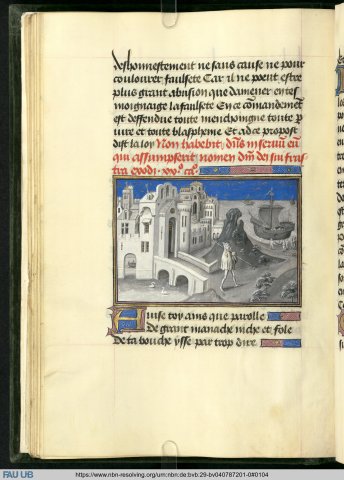 deshonnestement ne sans cause ne pour
coulourer faulsete Car il ne poeut estre
plus grant abusion que damener en tes
moignaige la faulsete En ce cōmandemēt
est deffendue toute menchoingne toute p
iure et toute blaspheme Et ad ce propost
dist la loy Non habebit dūs insontē eū
qui assumpserit nomen dnī dei sui frus
tra exodi xx° ca°
Auise toy ains que parolle
de grant manache niche et fole
de ta bouche ysse par trop dire
FAU UB
https://www.nbn-resolving.org/urn:nbn:de:bvb:29-bv040787201-0#0104